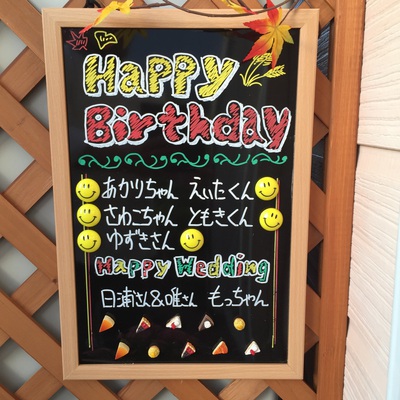 Happy
Birthday
あかりちゃん えいたくん
さわこちゃん ともきくん
ゆずきさん
Happy Wedding
日浦さん&唯さん もっちゃん